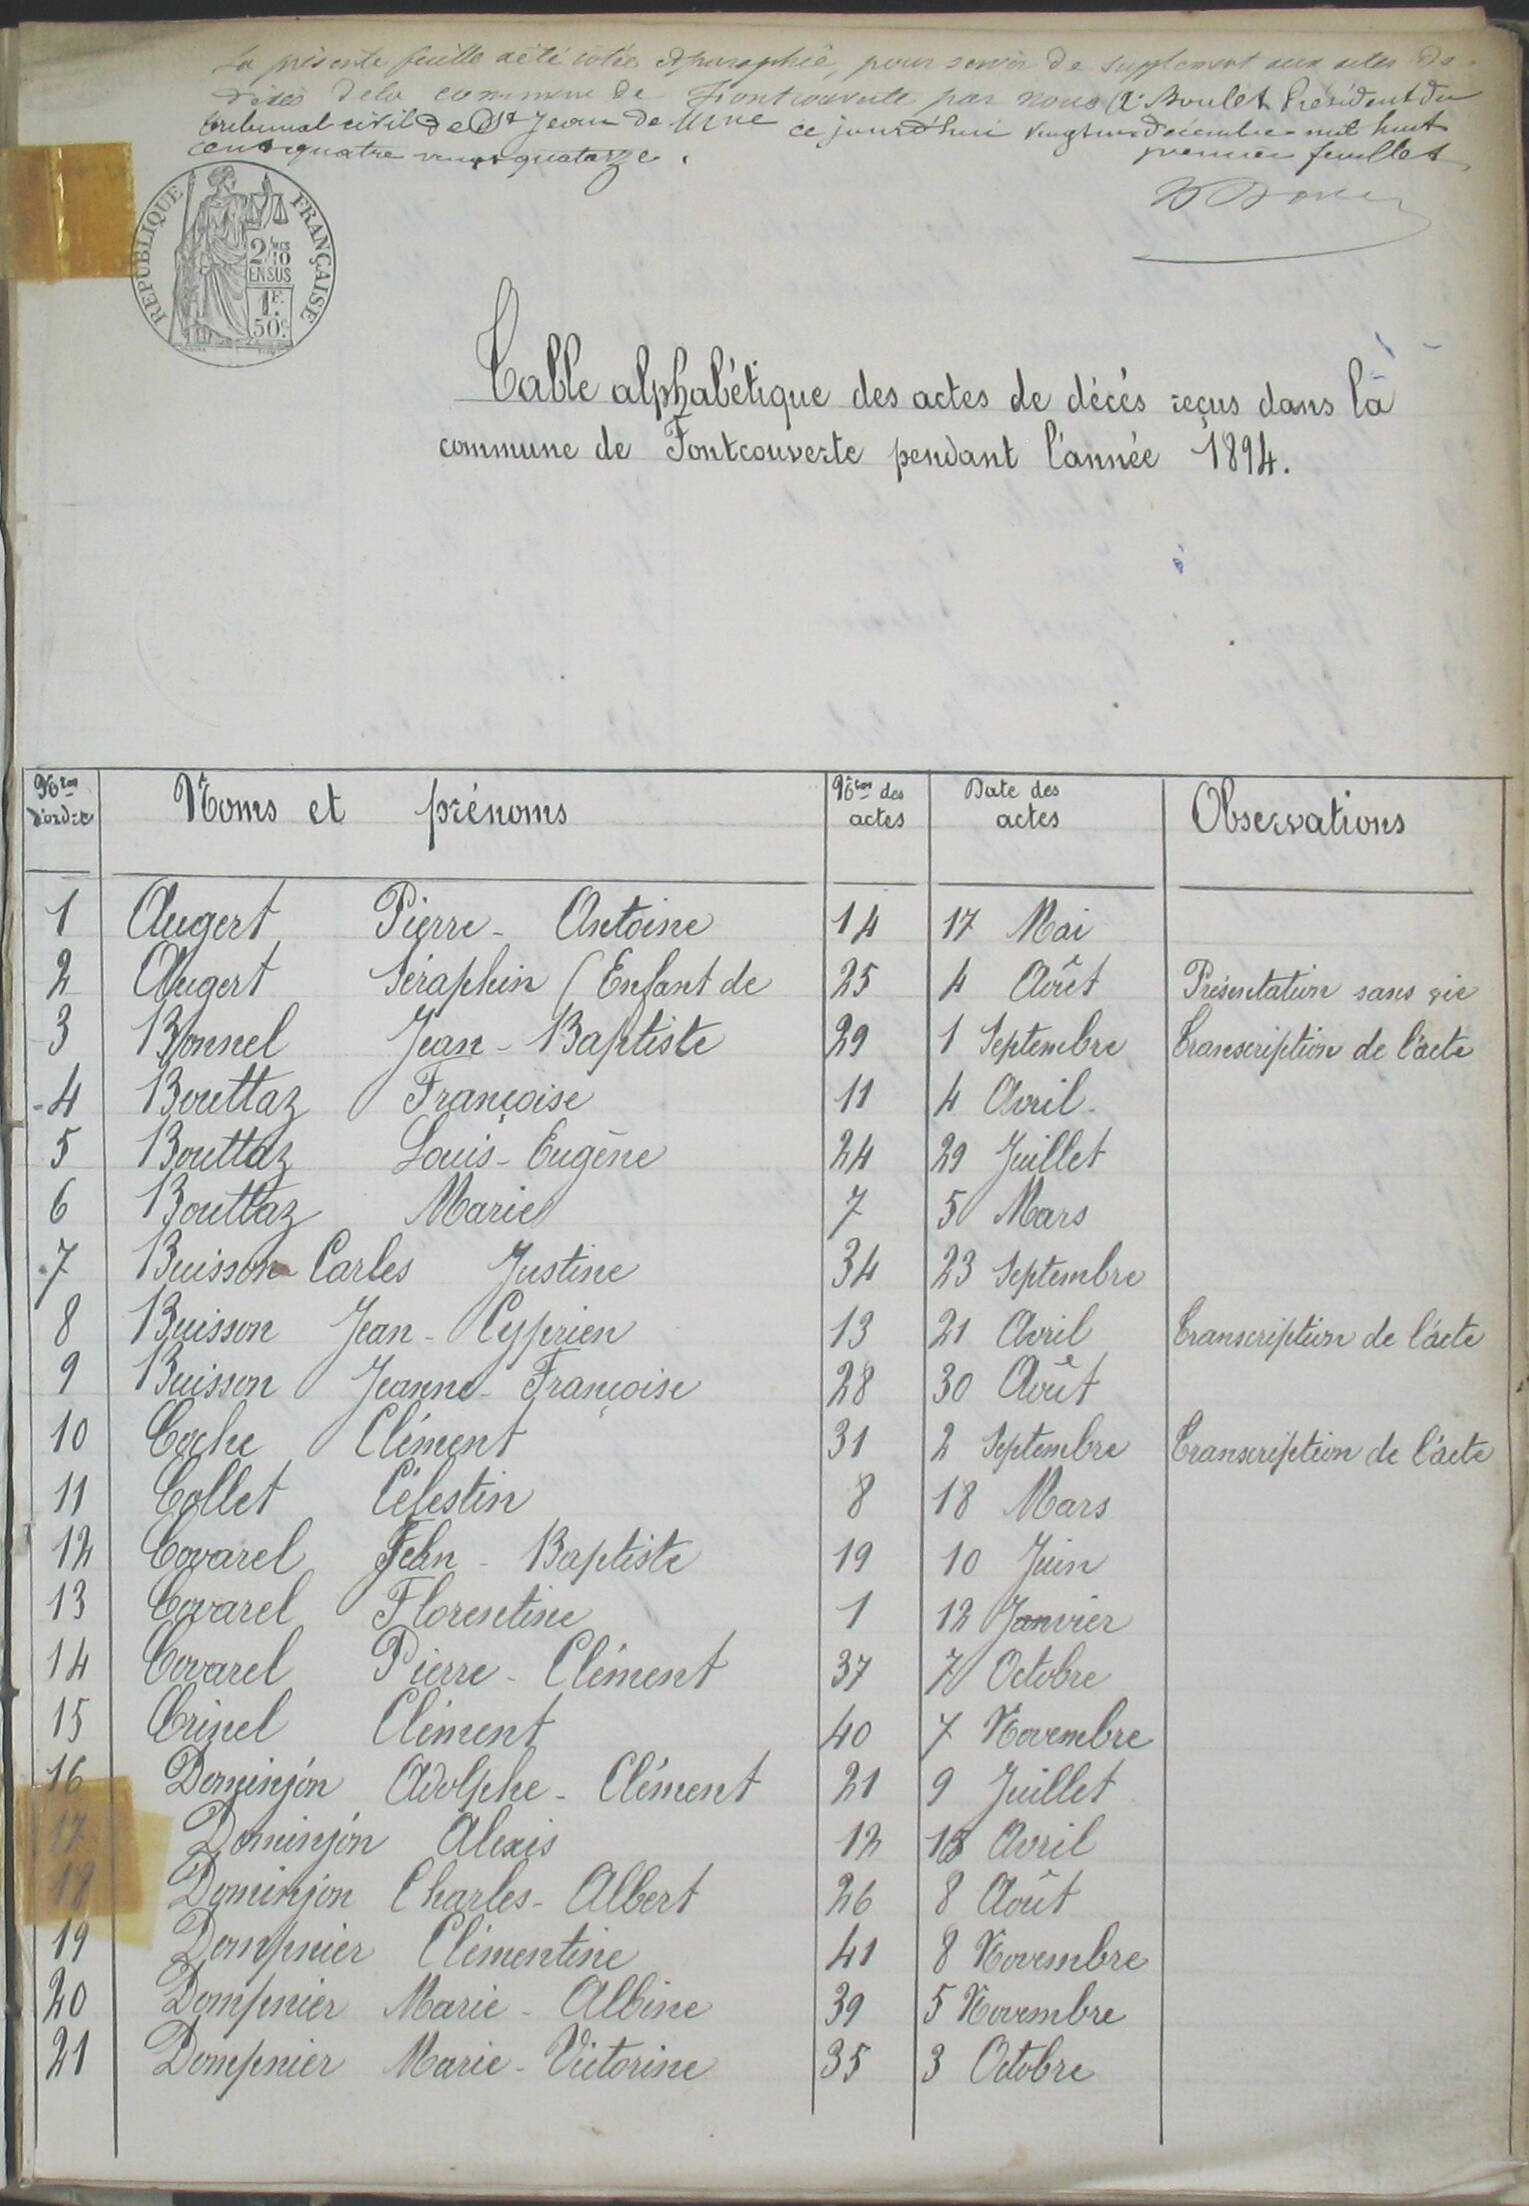 La présente feuille a été cotée et paraphée, pour servir de supplément aux actes de
décès de la commune de Fontcouverte par nous A. Boulet Président du
tribunal civil de St Jean de Mne ce jourd'hui vingt décembre mil huit
cent quatre vingt quatorze.
premier feuillet
RÉPUBLIQUE FRANÇAISE
2/10
EN SUS
1F.
50c.
Table alphabétique des actes de décés reçus dans la
commune de Fontcouverte pendant l'année 1894.
Nros d'ordre Noms et prénoms Nros des actes Date des actes Observations
1 Augert Pierre - Antoine 14 17 Mai
2 Augert Séraphin (Enfant de 25 4 Août Présentation sans vie
3 Bonnel Jean - Baptiste 29 1 Septembre Transcription de l'acte
4 Bouttaz Françoise 11 4 Avril
5 Bouttaz Louis - Eugène 24 29 Juillet
6 Bouttaz Marie 7 5 Mars
7 Buisson - Carles Justine 34 23 Septembre
8 Buisson Jean - Cyprien 13 21 Avril Transcription de l'acte
9 Buisson Jeanne - Françoise 28 30 Août
10 Coche Clément 31 2 Septembre Transcription de l'acte
11 Collet Célestin 8 18 Mars
12 Covarel Jean - Baptiste 19 10 Juin
13 Covarel Florentine 1 12 Janvier
14 Covarel Pierre - Clément 37 7 Octobre
15 Crinel Clément 40 7 Novembre
16 Dominjon Adolphe - Clément 21 9 Juillet
17 Dominjon Alexis 12 Avril
18 Dominjon Charles - Albert 26 8 Août
19 Dompnier Clémentine 41 8 Novembre
20 Dompnier Marie - Albine 39 5 Novembre
21 Dompnier Marie - Victorine 35 3 Octobre